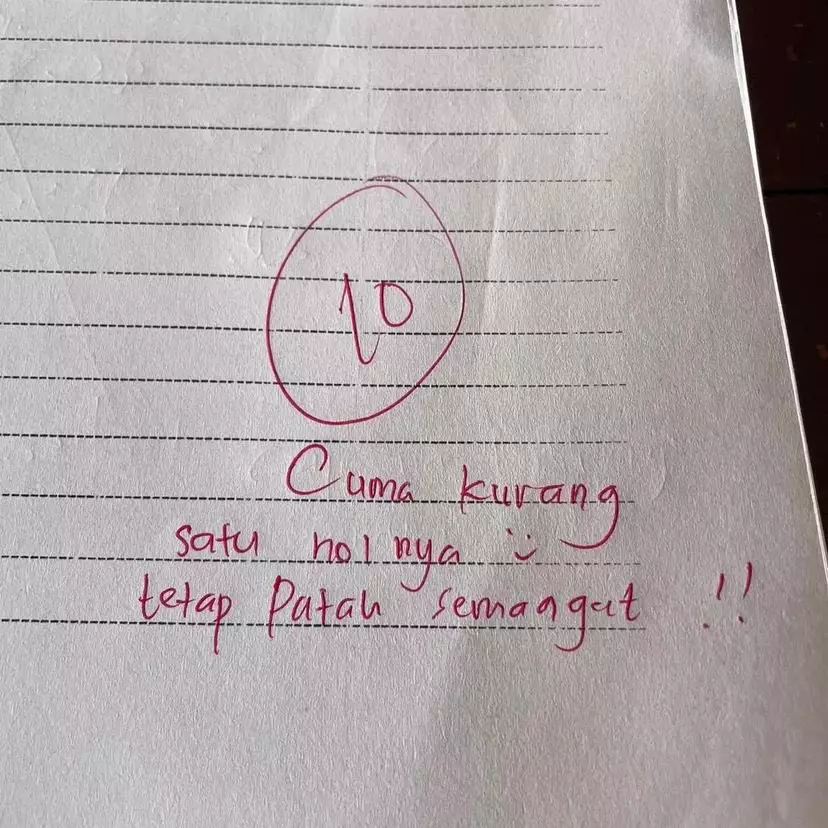 10
Cuma kurang
satu nol nya :)
tetap Patah semangat !!